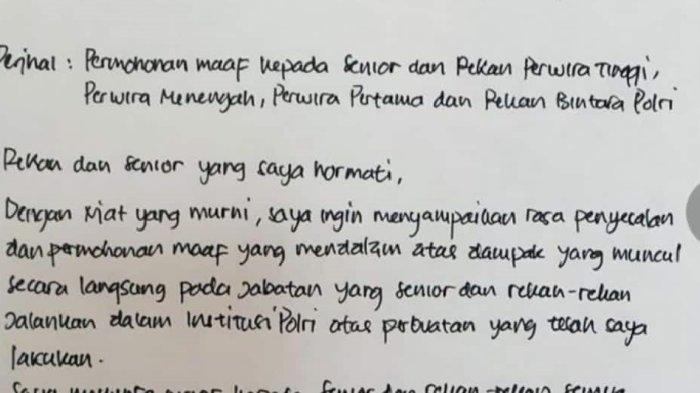 Perihal : Permohonan maaf kepada Senior dan Rekan Perwira Tinggi,
Perwira Menengah, Perwira Pertama dan Rekan Bintara Polri
Rekan dan senior yang saya hormati,
Dengan niat yang murni, saya ingin menyampaikan rasa penyesalan
dan permohonan maaf yang mendalam atas dampak yang muncul
secara langsung pada jabatan yang senior dan rekan-rekan
jalankan dalam institusi Polri atas perbuatan yang telah saya
lakukan.